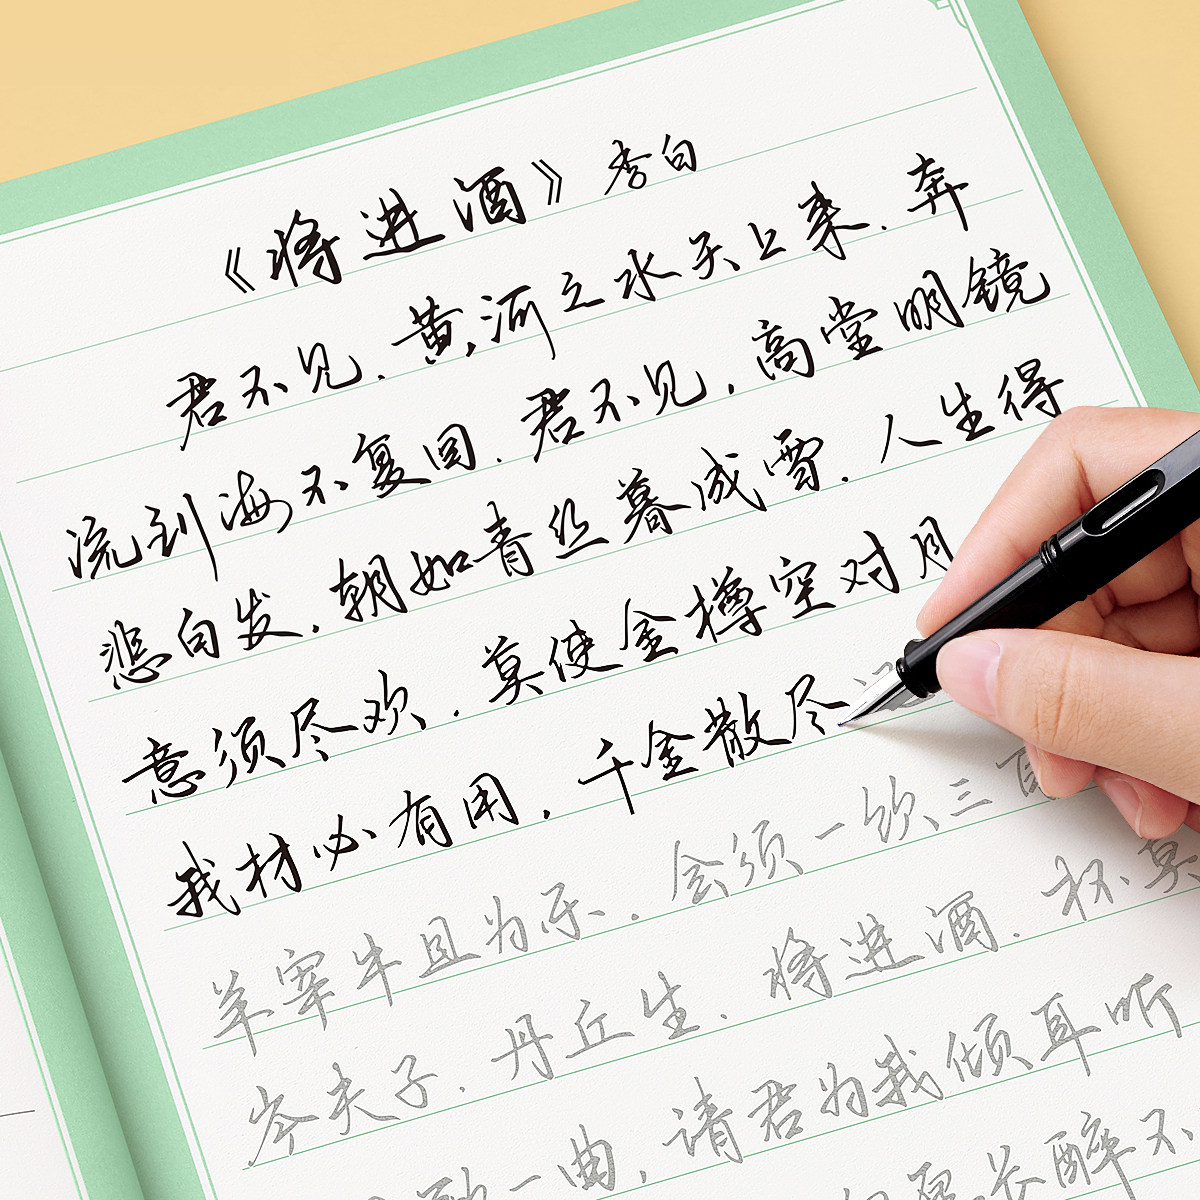 《将进酒》李白
君不见.黄河之水天上来.奔
流到海不复回.君不见.高堂明镜
悲白发.朝如青丝暮成雪.人生得
意须尽欢.莫使金樽空对月
我材必有用.千金散尽还
羊宰牛且为乐.会须一饮三百
岑夫子.丹丘生.将进酒.杯莫
歌一曲,请君为我倾耳听
愿长醉不